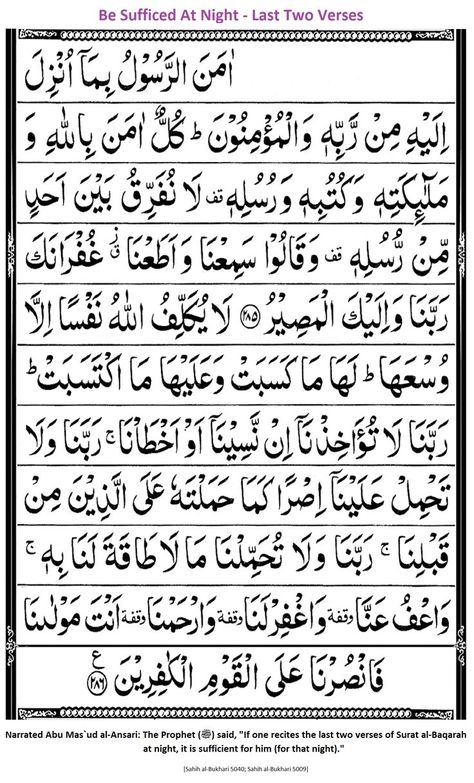 Be Sufficed At Night - Last Two Verses
اٰمَنَ الرَّسُوْلُ بِمَاۤ اُنْزِلَ
اِلَيْهِ مِنْ رَّبِّهٖ وَالْمُؤْمِنُوْنَ ؕ كُلٌّ اٰمَنَ بِاللّٰهِ وَ
مَلٰٓئِكَتِهٖ وَكُتُبِهٖ وَرُسُلِهٖ قف لَا نُفَرِّقُ بَيْنَ اَحَدٍ
مِّنْ رُّسُلِهٖ قف وَقَالُوْا سَمِعْنَا وَاَطَعْنَا ق ز غُفْرَانَكَ
رَبَّنَا وَاِلَيْكَ الْمَصِيْرُ ﴿۲۸۵﴾ لَا يُكَلِّفُ اللّٰهُ نَفْسًا اِلَّا
وُسْعَهَا ؕ لَهَا مَا كَسَبَتْ وَعَلَيْهَا مَا اكْتَسَبَتْ ؕ
رَبَّنَا لَا تُؤَاخِذْنَاۤ اِنْ نَّسِيْنَاۤ اَوْ اَخْطَاْنَا ۚ رَبَّنَا وَلَا
تَحْمِلْ عَلَيْنَاۤ اِصْرًا كَمَا حَمَلْتَهٗ عَلَى الَّذِيْنَ مِنْ
قَبْلِنَا ۚ رَبَّنَا وَلَا تُحَمِّلْنَا مَا لَا طَاقَةَ لَنَا بِهٖ ۚ
وَاعْفُ عَنَّا وقفة وَاغْفِرْ لَنَا وقفة وَارْحَمْنَا وقفة اَنْتَ مَوْلٰىنَا
فَانْصُرْنَا عَلَى الْقَوْمِ الْكٰفِرِيْنَ ﴿۲۸۶﴾ ع
Narrated Abu Mas`ud al-Ansari: The Prophet (ﷺ) said, "If one recites the last two verses of Surat al-Baqarah
at night, it is sufficient for him (for that night)."
[Sahih al-Bukhari 5040; Sahih al-Bukhari 5009]